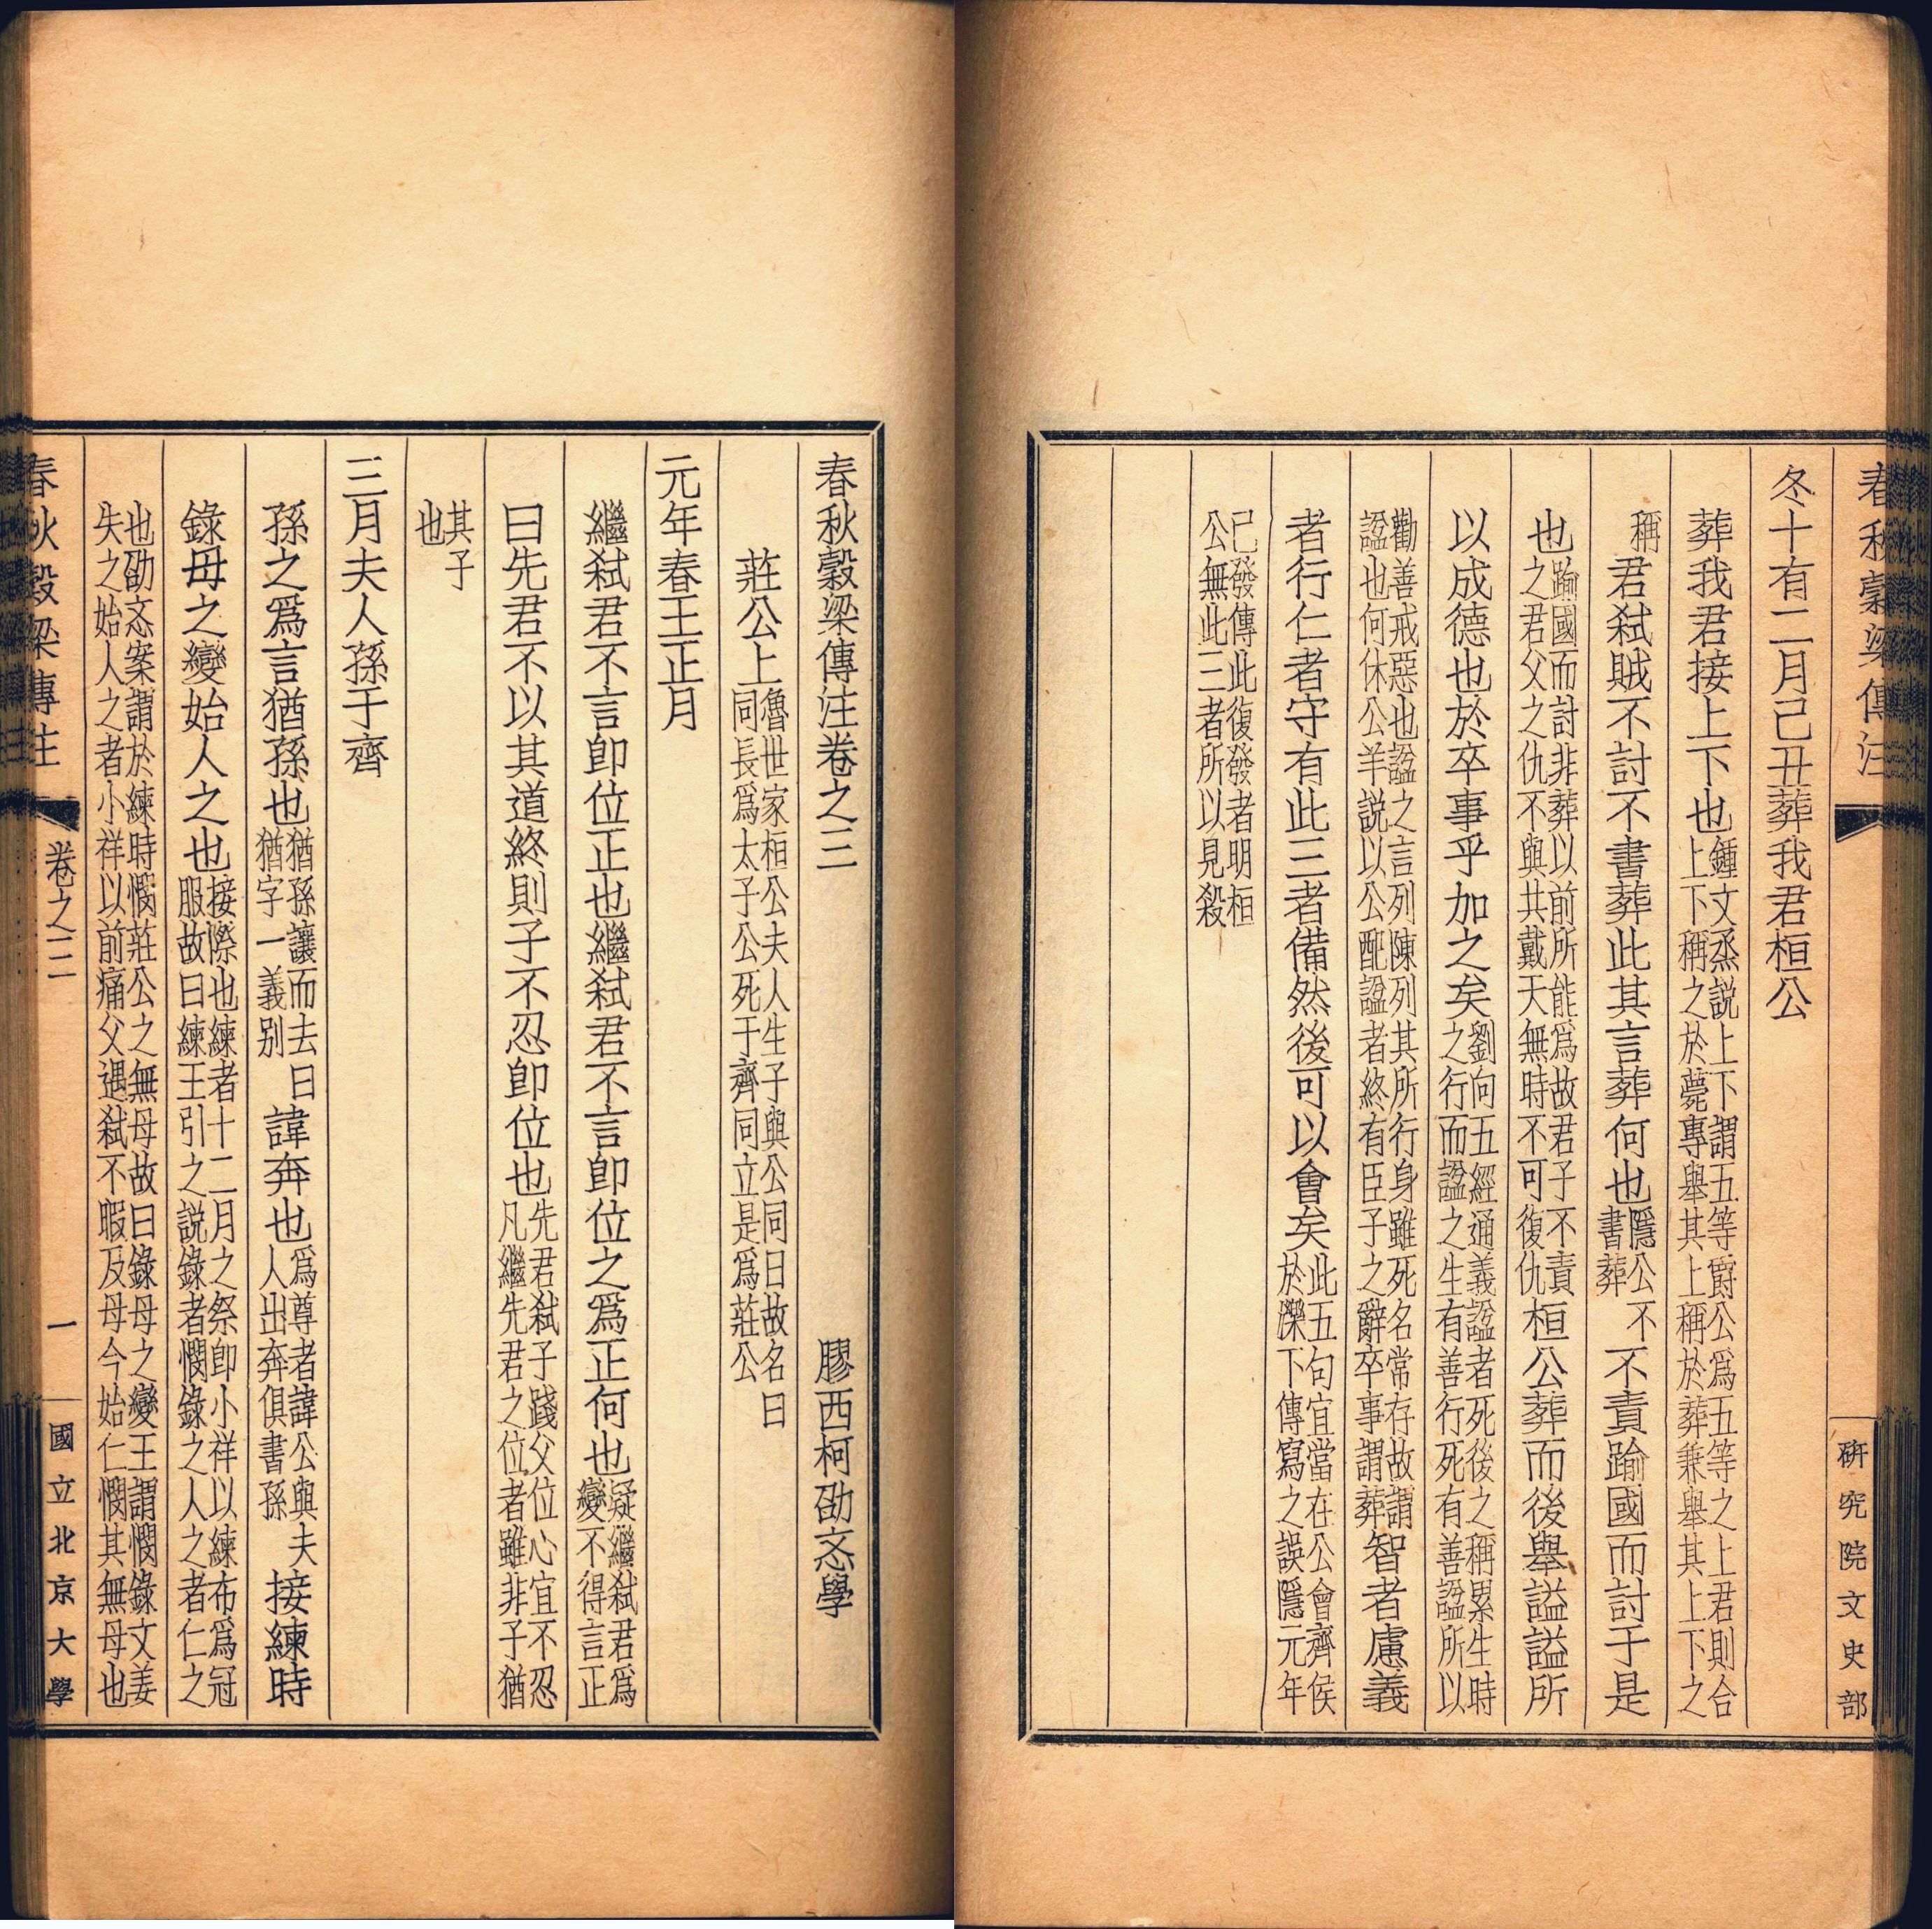 春秋穀梁傳注
研究院文史部
冬十有二月己丑葬我君桓公
葬我君接上下也鍾文烝説上下謂五等爵公爲五等之上君則合上下稱之於薨專舉其上稱於葬兼舉其上下之
稱君弑賊不討不書葬此其言葬何也隱公不書葬不責踰國而討于是
也踰國而討非葬以前所能爲故君子不責之君父之仇不與共戴天無時不可復仇桓公葬而後舉謚謚所
以成德也於卒事乎加之矣劉向五經通義謚者死後之稱累生時之行而謚之生有善行死有善謚所以
勸善戒惡也謚之言列陳列其所行身雖死名常存故謂謚也何休公羊説以公配謚者終有臣子之辭卒事謂葬智者慮義
者行仁者守有此三者備然後可以會矣此五句宜當在公會齊侯於濼下傳寫之誤隱元年
已發傳此復發者明桓公無此三者所以見殺
春秋穀梁傳注卷之三 膠西柯劭忞學
莊公上魯世家桓公夫人生子與公同日故名曰同長爲太子公死于齊同立是爲莊公
元年春王正月
繼弑君不言卽位正也繼弑君不言卽位之爲正何也疑繼弑君爲變不得言正
曰先君不以其道終則子不忍卽位也先君弑子踐父位心宜不忍凡繼先君之位者雖非子猶
其子也
三月夫人孫于齊
孫之爲言猶孫也猶孫讓而去曰猶字一義别諱奔也爲尊者諱公與夫人出奔俱書孫接練時
錄母之變始人之也接際也練者十二月之祭卽小祥以練布爲冠服故曰練王引之説錄者憫錄之人之者仁之
也劭忞案謂於練時憫莊公之無母故曰錄母之變王謂憫錄文姜失之始人之者小祥以前痛父遇弑不暇及母今始仁憫其無母也
春秋穀梁傳注
卷之三
一
國立北京大學